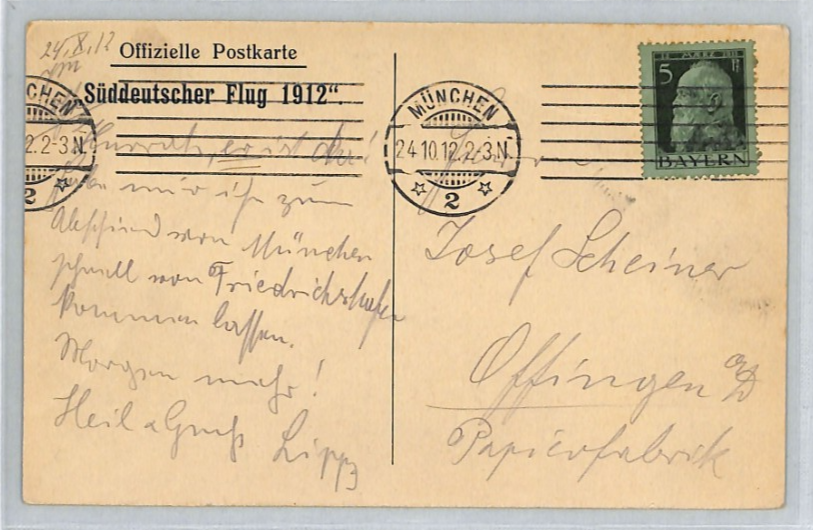 24.X.12
Offizielle Postkarte
Süddeutscher Flug 1912“.
Hurrah, er ist da!
mir ihn zum
Abschied von München
schnell von Friedrichshafen
kommen lassen.
Morgen mehr!
Heil & Gruß
MÜNCHEN
24.10.12.2-3.N.
2
CHEN
2.2-3.N.
5
BAYERN
Josef Scheiner
Offingen a/D
Papierfabrik